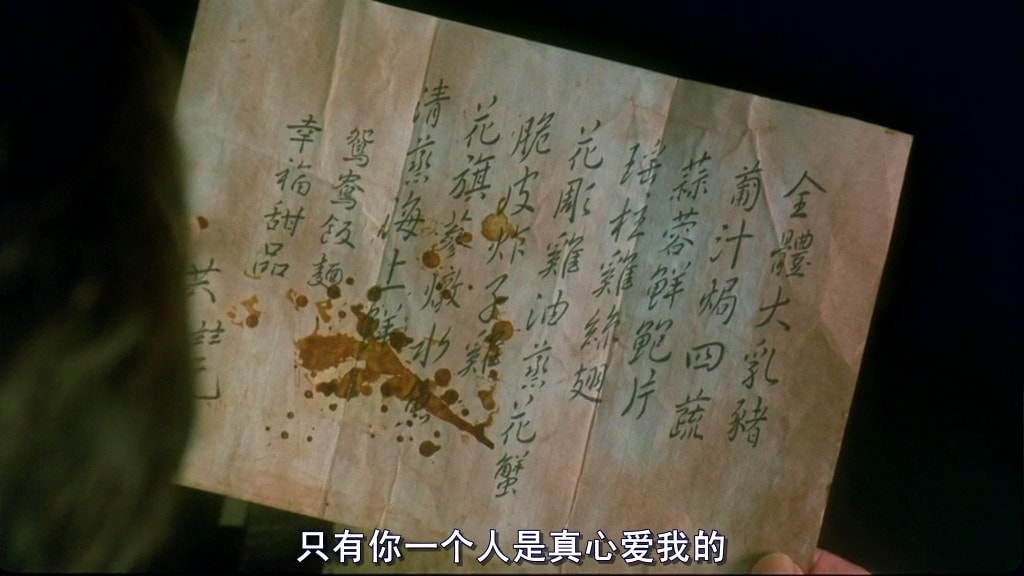 全體大乳豬
葡汁焗四蔬
蒜蓉鮮鮑片
瑤柱雞絲翅
花彫雞油蒸花蟹
脆皮炸子雞
花旗蔘燉水魚
清蒸海上鮮
鴛鴦飯麵
幸福甜品
共
只有你一个人是真心爱我的